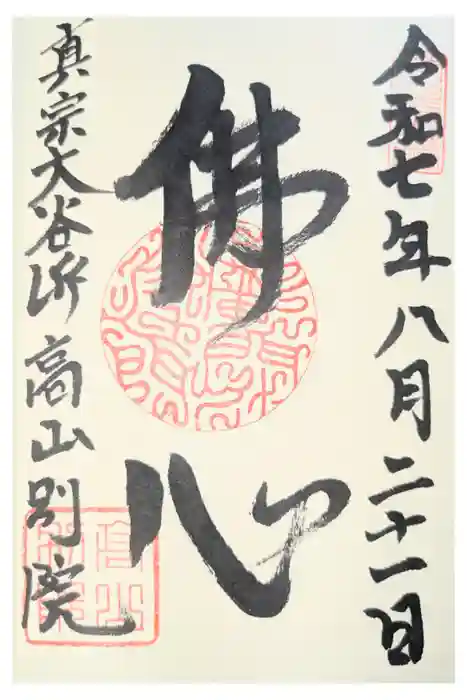 令和七年八月二十一日
佛心
真宗大谷派 高山別院